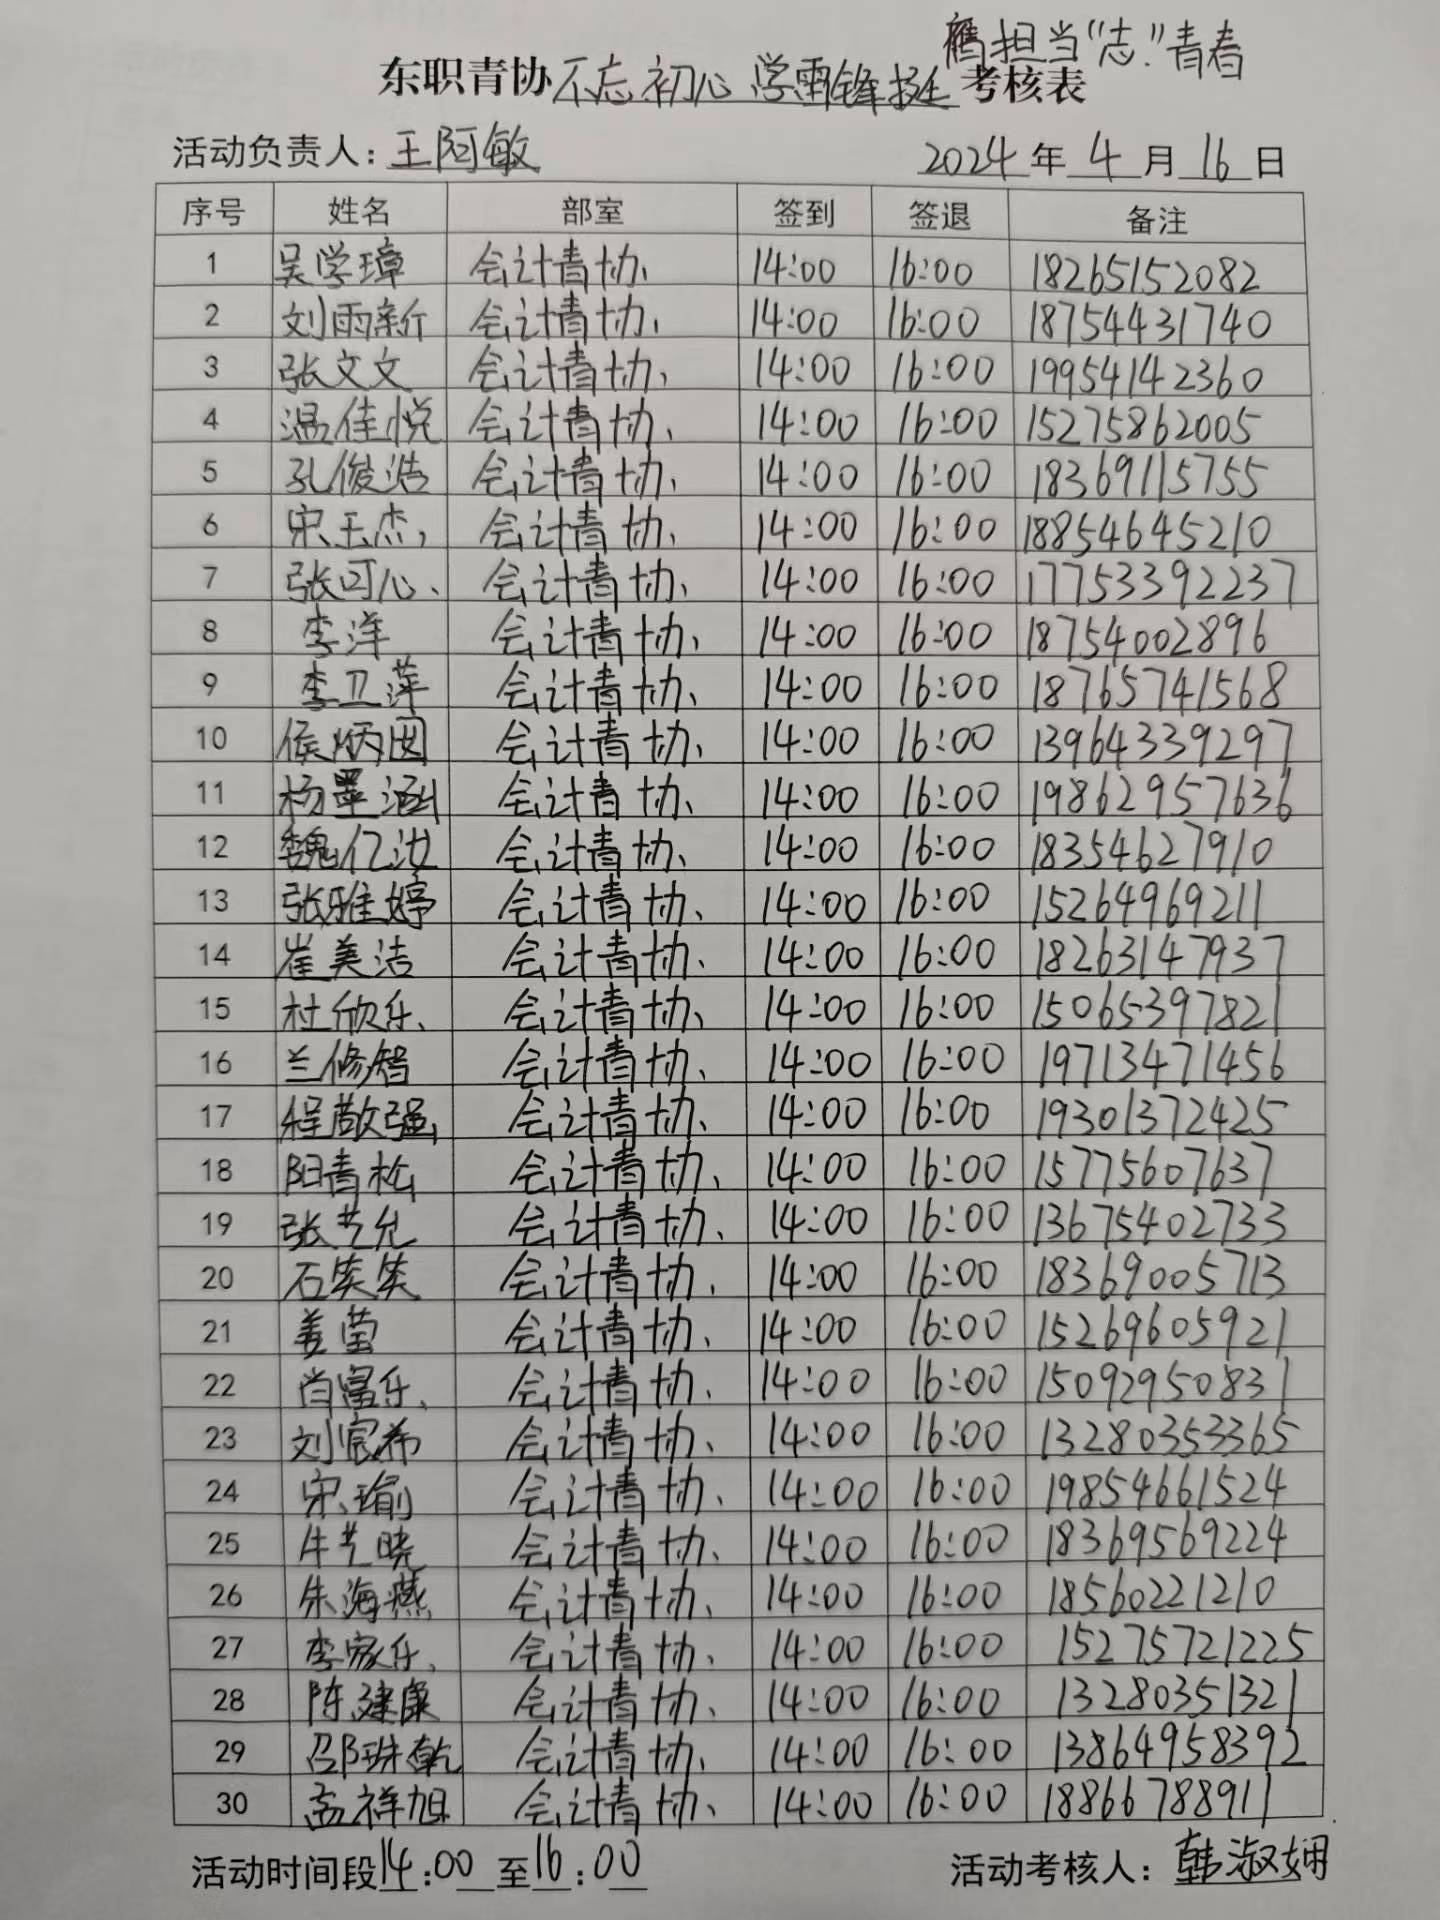 膺担当“志”青春
东职青协不忘初心 学雷锋挺考核表
活动负责人:王阿敏 2024年4月16日
序号 姓名 部室 签到 签退 备注
1 吴学璋 会计青协 14:00 16:00 18265152082
2 刘雨新 会计青协 14:00 16:00 18754431740
3 张文文 会计青协 14:00 16:00 19954142360
4 温佳悦 会计青协 14:00 16:00 15275862005
5 孔俊浩 会计青协 14:00 16:00 18369115755
6 宋玉杰 会计青协 14:00 16:00 18854645210
7 张可心 会计青协 14:00 16:00 17753392237
8 李洋 会计青协 14:00 16:00 18754002896
9 李卫萍 会计青协 14:00 16:00 18765741568
10 侯炳因 会计青协 14:00 16:00 13964339297
11 杨墨涵 会计青协 14:00 16:00 19862957636
12 魏亿汝 会计青协 14:00 16:00 18354627910
13 张雅婷 会计青协 14:00 16:00 15264969211
14 崔美洁 会计青协 14:00 16:00 18263147937
15 杜欣乐 会计青协 14:00 16:00 15065397821
16 兰修智 会计青协 14:00 16:00 19713471456
17 程敬强 会计青协 14:00 16:00 19301372425
18 阳青松 会计青协 14:00 16:00 15775607637
19 张艺允 会计青协 14:00 16:00 13675402733
20 石笑笑 会计青协 14:00 16:00 18369005713
21 姜莹 会计青协 14:00 16:00 15269605921
22 肖富乐 会计青协 14:00 16:00 15092950831
23 刘宸希 会计青协 14:00 16:00 13280353365
24 宋瑜 会计青协 14:00 16:00 19854661524
25 牛艺晓 会计青协 14:00 16:00 18369569224
26 朱海燕 会计青协 14:00 16:00 18560221210
27 李家乐 会计青协 14:00 16:00 15275721225
28 陈建康 会计青协 14:00 16:00 13280351321
29 邵珠乾 会计青协 14:00 16:00 13864958392
30 孟祥旭 会计青协 14:00 16:00 18866788911
活动时间段14:00至16:00 活动考核人:韩淑娴